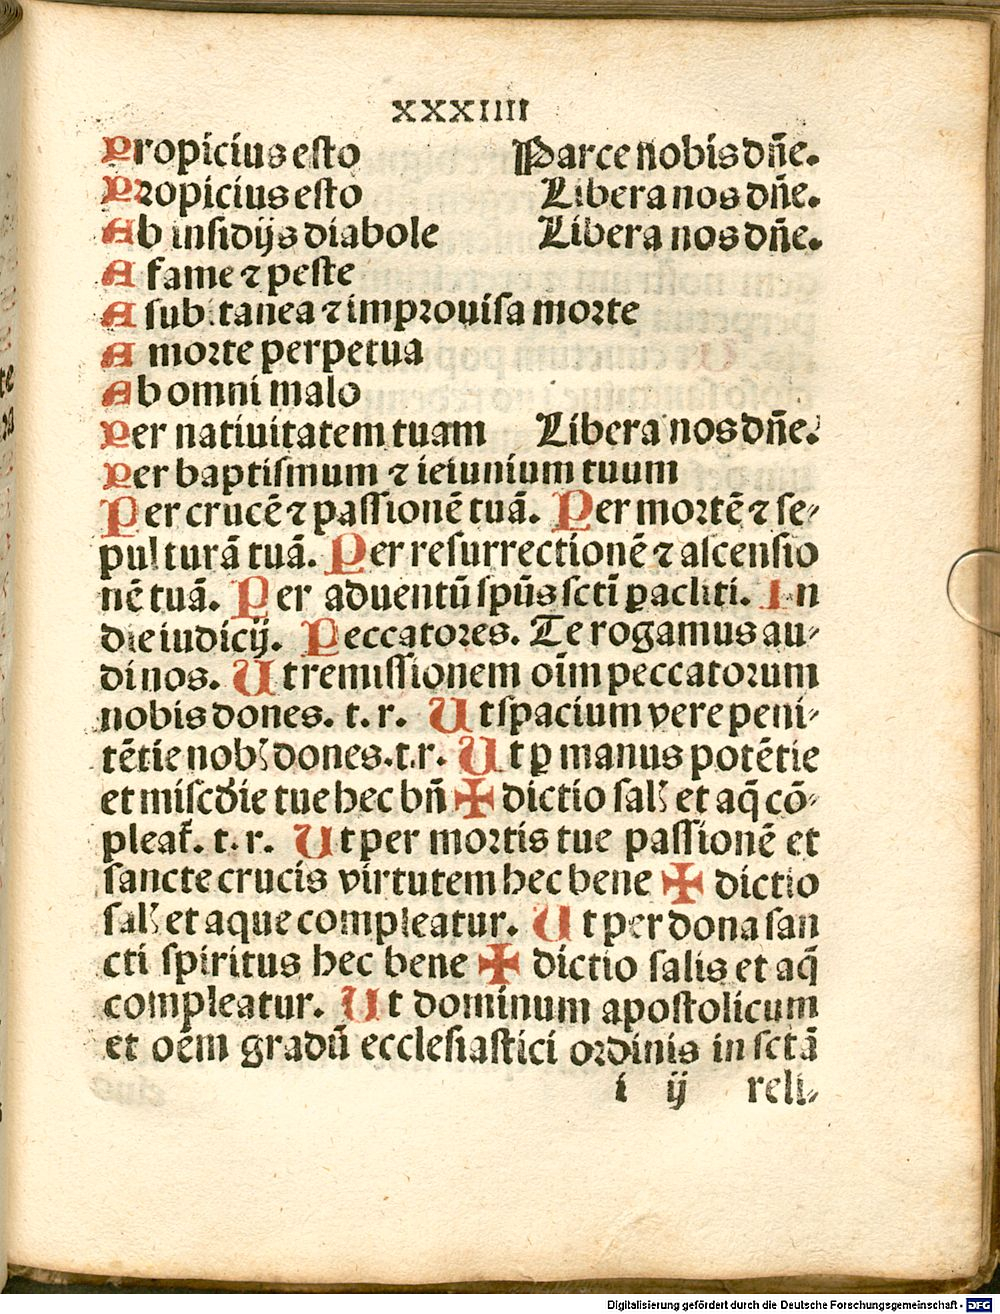 xxxiiii
Propicius esto Parce nobis dñe.
Propicius esto Libera nos dñe.
Ab insidijs diabole Libera nos dñe.
A fame ⁊ peste
A subitanea ⁊ improuisa morte
A morte perpetua
Ab omni malo
Per natiuitatem tuam Libera nos dñe.
Per baptismum ⁊ ieiunium tuum
Per crucē ⁊ passionē tuā. Per mortē ⁊ se-
pulturā tuā. Per resurrectionē ⁊ ascensio
nē tuā. Per aduentū spūs scti ꝑacliti. In
die iudicij. Peccatores. Te rogamus au-
dinos. Ut remissionem oīm peccatorum
nobis dones. t. r. Ut spacium vere peni-
tētie nobꝭ dones. t. r. Ut ꝑ manus potētie
et miscd̄ie tue hec bñ ✠ dictio salꝭ et aq̄ cō-
pleat᷑. t. r. Ut per mortis tue passionē et
sancte crucis virtutem hec bene ✠ dictio
salꝭ et aque compleatur. Ut per dona san
cti spiritus hec bene ✠ dictio salis et aq̄
compleatur. Ut dominum apostolicum
et oēm gradū ecclesiastici ordinis in sctā
i ij reli-
Digitalisierung gefördert durch die Deutsche Forschungsgemeinschaft - DFG